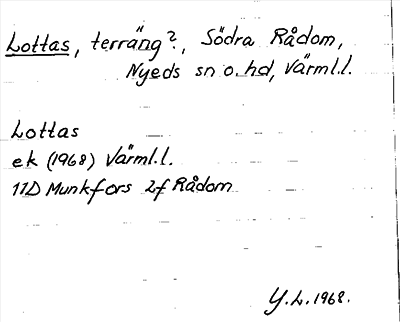 Lottas, terräng?, Södra Rådom,
Nyeds sn o. hd, Värml.l.
Lottas
ek (1968) Värml.l.
11D Munkfors 2f Rådom
Y.L. 1968.